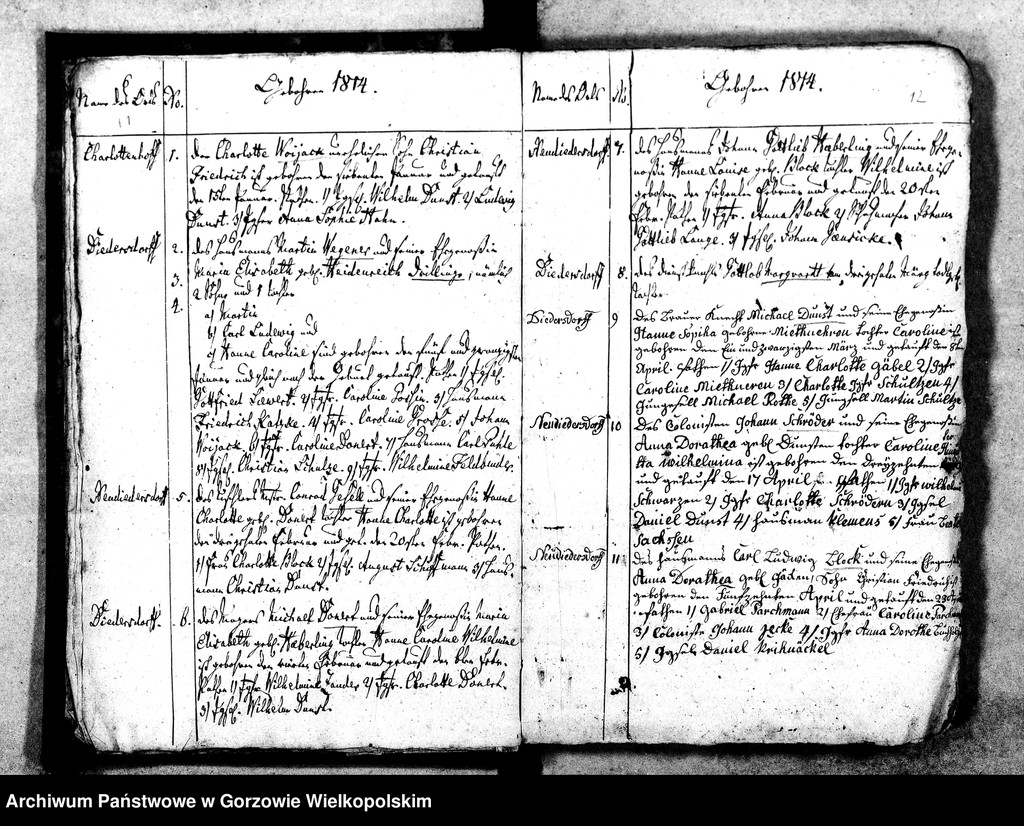 6
Name des Orts No. Gebohren 1814.
11
Charlottenhoff 1. Der Charlotte Woijack unehelicher Sohn Christian
Friedrich ist gebohren den siebenden Januar und getauft
den 15ten Januar. Pathen. 1/ Jgsel. Wilhelm Dunst. 2/ Ludwig
Dunst. 3/ Jgfer Anna Sophie Hahn.
Diedersdorff 2. des Hausmanns Martin Wegener und seiner Ehegenossin
3. Maria Elisabeth geb. Heidenreich Drillinge, nämlich
4. 2 Söhne und 1 Tochter
a/ Martin
b/ Carl Ludewig und
c/ Hanne Caroline sind gebohren den fünf und zwanzigsten
Januar und gleich nach der Geburt getauft. Pathen 1/ Jgsel.
Gottfried 2/ Jgfr. Caroline 3/ Hausmann
Friedrich 4/ Jgfr. Caroline 5/ Johann
Woijack. 6/ Jgfr. Caroline Donert. 7/ Hausmann Carl
8/ Jgsel. Christian Schulze. 9/ Jgfr. Wilhelmine
Neudiedersdorff 5. des Conrad und seiner Ehegenossin Hanne
Charlotte geb. Donert Tochter Hanne Charlotte ist gebohren
den dreizehnten Februar und get. den 20sten Febr. Pathen.
1/ Frau Charlotte Block 2/ Jgsel. August Schiffmann 3/ Haus-
mann Christian Dunst.
Diedersdorff. 6. des Michael Donert und seiner Ehegenossin Maria
Elisabeth geb. Haeberling Tochter Hanne Caroline Wilhelmine
ist gebohren den vierten Februar und getauft den 6ten Febr.
Pathen 1/ Jgfr Wilhelmine Zander 2/ Jgfr. Charlotte Donert.
3/ Jgsel. Wilhelm Dunst.
Name des Orts No. Gebohren 1814.
12
Neudiedersdorff 7. des Hausmanns Johann Gottlieb Haeberling und seiner Ehege-
nossin Hanne Louise geb. Block Tochter Wilhelmine ist
gebohren den siebenden Februar und getauft den 20sten
Febr. Pathen 1/ Jgfr. Anna Block 2/ Johann
Gottlieb Lange. 3/ Jgsel. Johann Jaenicke.
Diedersdorff 8. des Dienstknechts Gottlob Marquartt
Tochter
Diedersdorff 9 Des Brauer Knecht Michael Dunst und seine Ehegenossin
Hanne Sopika gebohrne Miethnehren Tochter Caroline ist
gebohren den Ein und zwanzigsten März und getauft den
April. Pathen 1/ Jgfr Hanne Charlotte Gäbel 2/ Jgfr
Caroline Miethneren 3/ Charlotte Jgfr Schültzen 4/
Jungesell Michael Rothe 5/ Jungsell Martin Schültze
Neudiedersdorff 10 Des Colonisten Johann Schröder und seine Ehegenossin
Anna Dorathea gebl Dunsten Tochter Caroline
wilhelmina ist gebohren den Dreyzehnten
und getauft den 17 April Pathen 1/ Jgfr wilhelm
Schwarzen 2/ Jgfr Charlotte Schrödern 3/ Jgsel
Daniel Dunst 4/ Hausman Klemens 5/ Frau
Sachssen
Neudiedersdorff 11 Des Hausmanns Carl Ludwig Block und seine Ehegenossin
Anna Dorathea gebl Gäden, Sohn Christian Friedrich ist
gebohren den Fünfzehnten April und getauft den
Pathen 1/ Gabriel Parchmann 2/ Ehefrau Caroline
3/ Coloniste Johann Jecke 4/ Jgfr Anna Dorothe
5/ Jgsel Daniel Krihnäckel
Archiwum Państwowe w Gorzowie Wielkopolskim